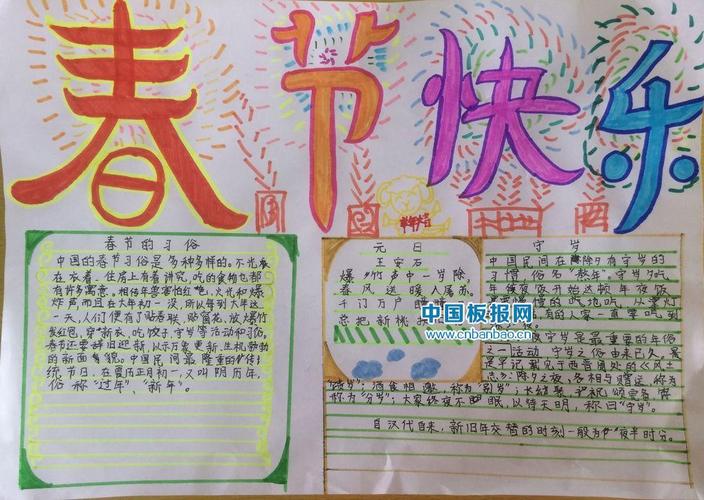 春节快乐
春节的习俗
中国的春节习俗是多种多样的。不光
在衣着、住房上有着讲究,吃的食物也都
有许多寓意,相传年兽害怕红色、火光和爆
炸声,而且在大年初一没,所以每到大年这
一天,人们便有了贴春联、贴窗花、放爆竹
发红包、穿新衣、吃饺子、守岁等活动和习俗,
春节还要辞旧迎新,以示万象更新、生机勃勃
的新面貌。中国民间最隆重的传
统节日,在夏历正月初一,又叫阴历年,
俗称"过年"、"新年"。
元日
王安石
爆竹声中一岁除,
春风送暖入屠苏。
千门万户
总把新桃
守岁
中国民间在除夕有守岁的
习惯,俗名"熬年"。守岁从吃
年夜饭开始,这顿年夜饭
要慢慢的吃,
有的人家一直要吃到
守岁是最重要的年俗
之一活动,守岁之俗由来已久。最
早记载见于西晋周处的《风土
志》:除夕之夜,各相与赠送,称为
"馈岁";酒食相邀,称为"别岁";
称为"分岁";大家终夜不眠,以待天明,称曰"守岁"。
自汉代自来,新旧年交替的时刻一般为"夜半时分。
中国板报网
www.cnbanbao.cn